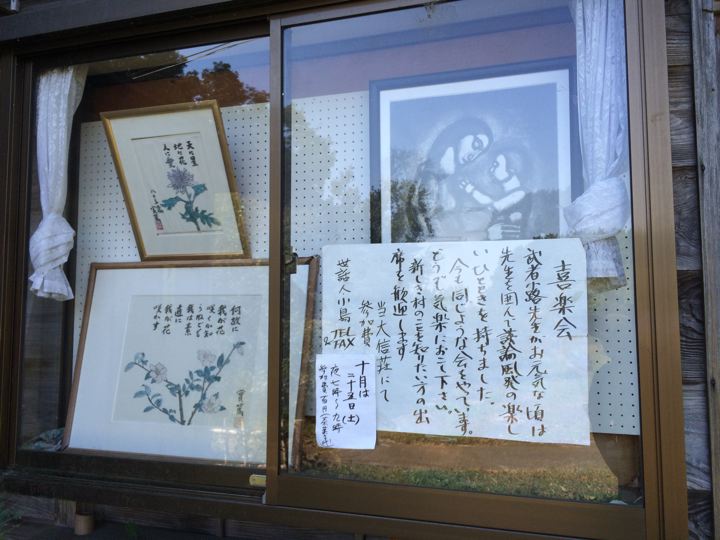 喜楽会
武者小路先生がお元気な頃は
先生を囲んで談論風発の楽し
いひとときを持ちました。
今も同じような会をやっています。
どうぞ気楽におこし下さい。
新しき村のことを知りたい方の出
席を歓迎します
当大信荘にて
参加費
世話人小島 TEL & FAX
十月は
二十五日(土)
夜七時〜九時
天に星
地に花
人に愛
何故に
我が花
咲くか知
らねども
我は素
直に
我が花
咲かす
實篤